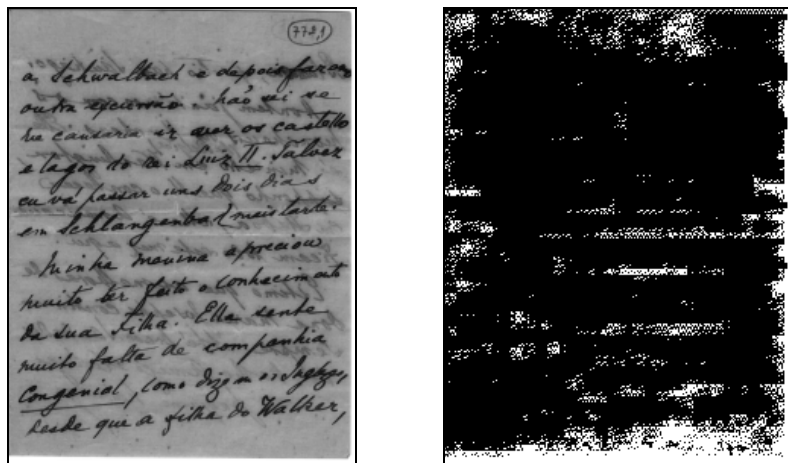 778,1
a, Schwalbach e depois farão
outra excursão: não sei se
lhe causaria ir ver os castellos
e lagos do rei Luiz II. Talvez
eu vá passar uns dois dias
em Schlangenbad mais tarde.
Minha menina apreciou
muito ter feito o conhecimento
da sua filha. Ella sente
muito falta de companhia
congenial, como dizem os Inglezes,
desde que a filha do Walker,